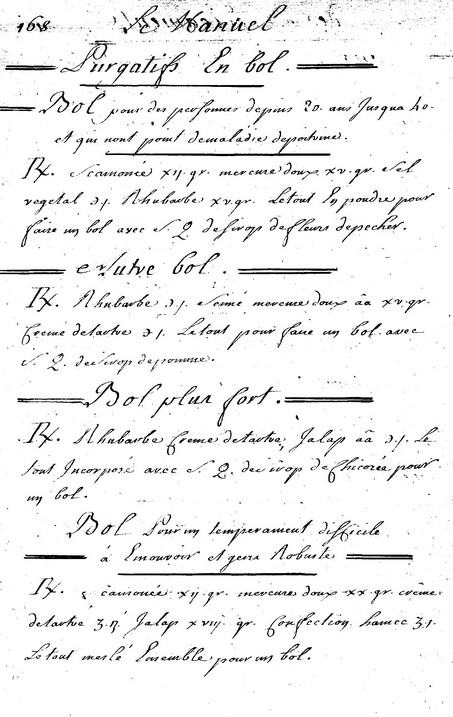 168 Le Manuel
Purgatifs En bol.
Bol pour des personnes depuis 20. ans Jusqua 40.
et qui nont point demaladie depoitrine.
℞. Scamonée xij. gr. mercure doux xv. gr. Sel
vegetal ℈j. Rhubarbe xv. gr. Letout En poudre pour
faire un bol avec S. Q. desirop defleurs depecher.
Autre bol.
℞. Rhubarbe ℈j. mercure doux ãa xv. gr.
Creme detartre ℈j. Letout pour faire un bol avec
S. Q. desirop depomme.
Bol plus fort.
℞. Rhubarbe Creme detartre, Jalap ãa ℈j. Le
tout Incorporé avec S. Q. desirop de Chicorée pour
un bol.
Bol Pour un temperament difficile
à Emouvoir et gens Robuste
℞. scamonée xij. gr. mercure doux xx. gr. crême
detartre Jalap xviij gr. Confection hamec ʒj.
Letout meslé Ensemble pour un bol.